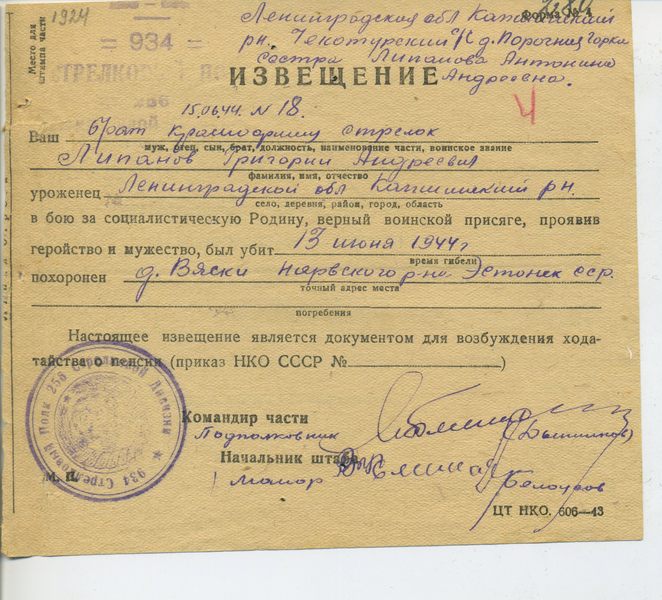 1924
Место для
штампа части
= 934 =
СТРЕЛКОВ
Форма № 4
Ленинградская обл Капшинский
рн. Чекотурский с/с д. Порочная Горка
сестра Липанова Антонина
Андреевна.
ИЗВЕЩЕНИЕ
15.06.44. N 18.
4
Ваш брат красноармеец стрелок
муж, отец, сын, брат, должность, наименование части, воинское звание
Липанов Григорий Андреевич
фамилия, имя, отчество
уроженец Ленинградской обл Капшинский рн.
село, деревня, район, город, область
в бою за социалистическую Родину, верный воинской присяге, проявив
геройство и мужество, был убит 13 июня 1944г
время гибели
похоронен д. Вяски Нарвского р-на Эстонск сср.
точный адрес места
погребения
Настоящее извещение является документом для возбуждения хода-
тайства о пенсии (приказ НКО СССР № )
934 Стрелковый Полк 256 Стрелковой Дивизии
Командир части
Подполковник
Начальник штаба
майор
Белоусов
М. П.
ЦТ НКО. 606—43